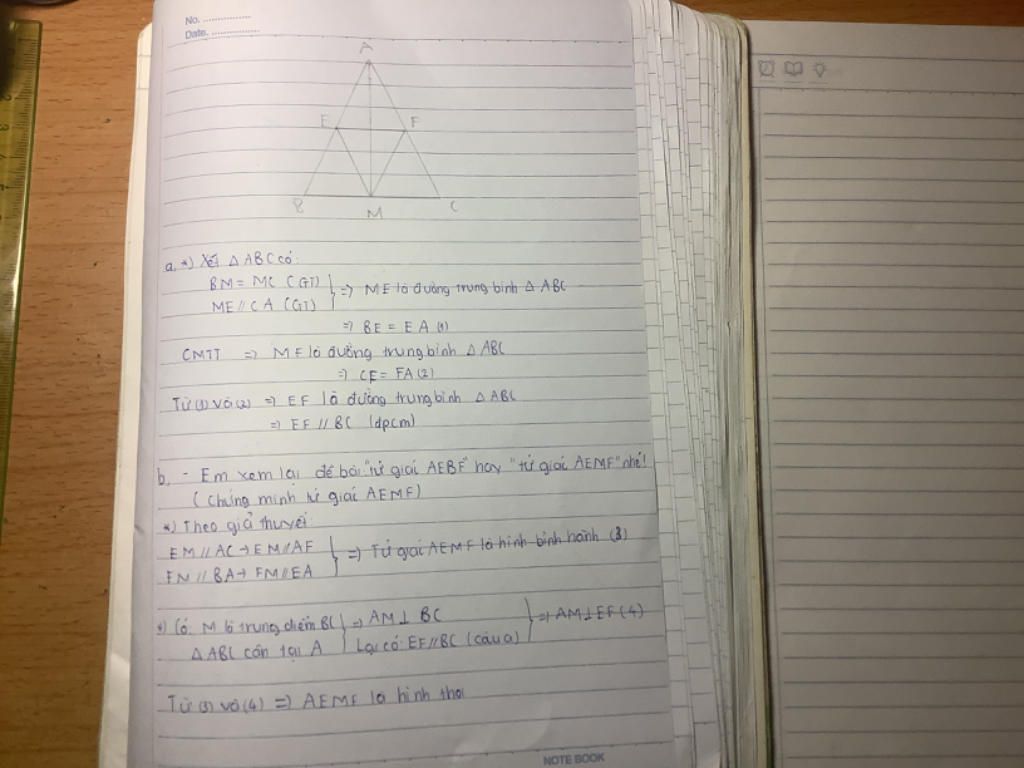 No. ................
Date. ................
A
E F
B M C
a, *) Xét △ ABC có:
BM = MC (GT)
ME // CA (GT)
=> ME là đường trung bình △ ABC
=> BE = EA (1)
CMTT => MF là đường trung bình △ ABC
=> CF = FA (2)
Từ (1) và (2) => EF là đường trung bình △ ABC
=> EF // BC (đpcm)
b, - Em xem lại đề bài "tứ giác AEBF" hay "tứ giác AEMF" nhé!
(Chứng minh tứ giác AEMF)
*) Theo giả thuyết:
EM // AC → EM // AF
FM // BA → FM // EA
=> Tứ giác AEMF là hình bình hành (3)
*) Có: M là trung điểm BC
△ ABC cân tại A
=> AM ⊥ BC
Lại có: EF // BC (câu a)
=> AM ⊥ EF (4)
Từ (3) và (4) => AEMF là hình thoi
NOTE BOOK